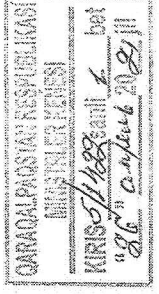 QARAQALPAQSTAN RESPUBLIKASÍ
MINISTRLER KEŃESI
KIRIS 01/1/22 sanı 1 bet
"26" апрель 2021 jıl